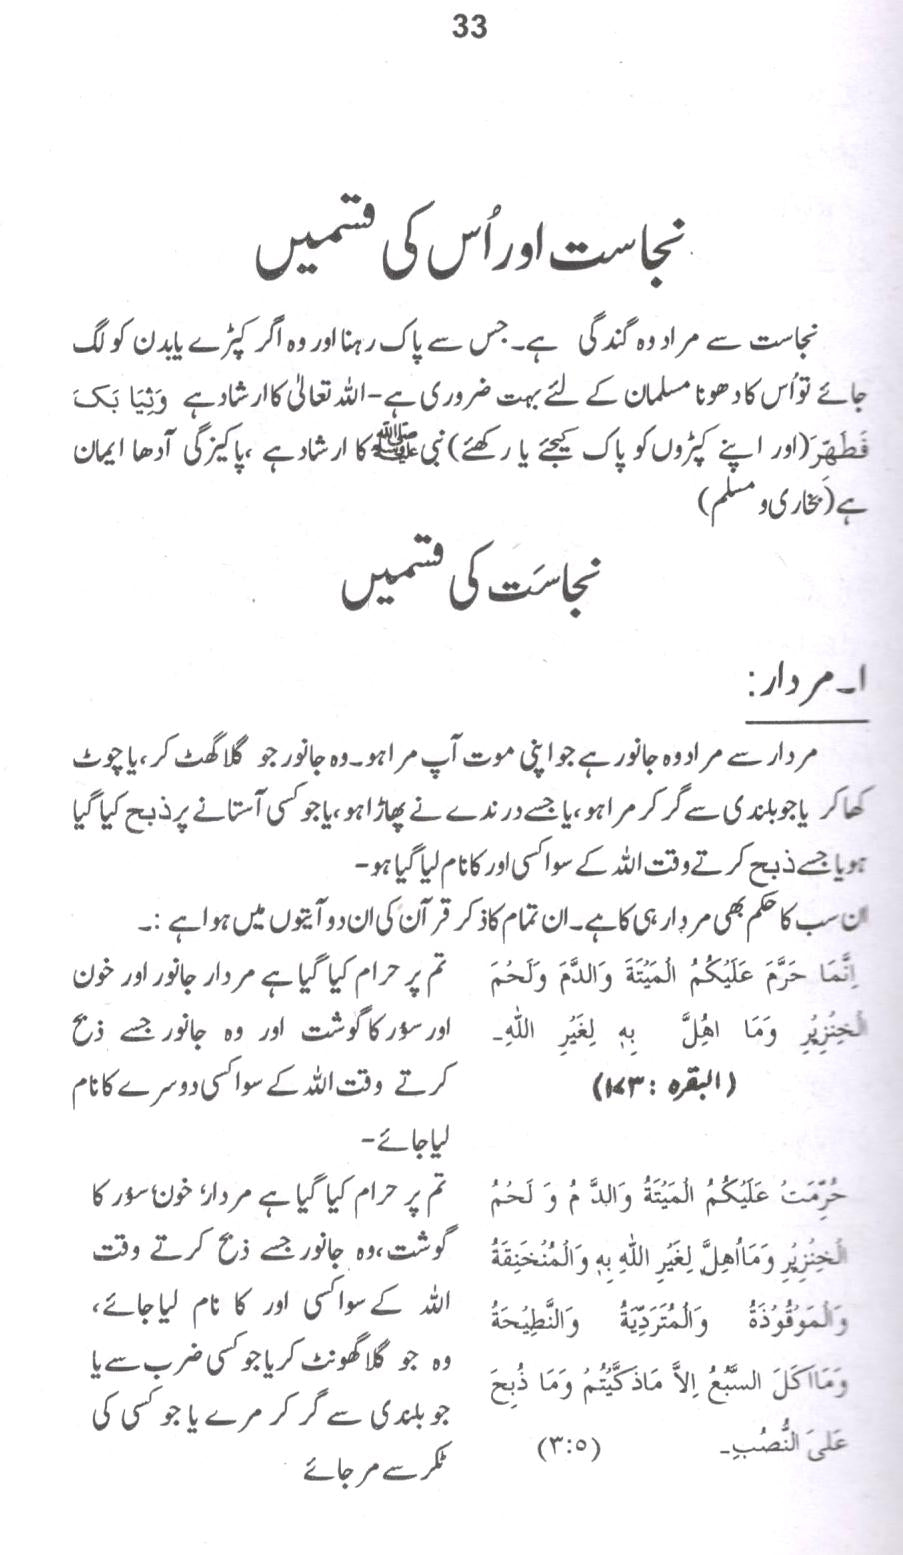 33
نجاست اور اُس کی قسمیں
نجاست سے مراد وہ گندگی ہے۔ جس سے پاک رہنا اور وہ اگر کپڑے یا بدن کو لگ
جائے تو اُس کا دھونا مسلمان کے لئے بہت ضروری ہے- اللہ تعالیٰ کا ارشاد ہے وَثِیَا بَکَ
فَطَهِّرْ (اور اپنے کپڑوں کو پاک کیجئے یا رکھئے) نبی ﷺ کا ارشاد ہے، پاکیزگی آدھا ایمان
ہے (بخاری و مسلم)
نجاسَت کی قسمیں
۱۔ مردار:
مردار سے مراد وہ جانور ہے جو اپنی موت آپ مرا ہو۔ وہ جانور جو گلا گھٹ کر، یا چوٹ
کھا کر یا جو بلندی سے گر کر مرا ہو، یا جسے درندے نے پھاڑا ہو، یا جو کسی آستانے پر ذبح کیا گیا
ہو یا جسے ذبح کرتے وقت اللہ کے سوا کسی اور کا نام لیا گیا ہو-
ان سب کا حکم بھی مردار ہی کا ہے۔ ان تمام کا ذکر قرآن کی ان دو آیتوں میں ہوا ہے :۔
اِنَّمَا حَرَّمَ عَلَيْكُمُ الْمَيْتَةَ وَالدَّمَ وَلَحْمَ
الْخِنْزِيْرِ وَمَا اُهِلَّ بِهٖ لِغَيْرِ اللّٰهِ۔
(البقرہ : ۱۷۳)
تم پر حرام کیا گیا ہے مردار جانور اور خون
اور سؤر کا گوشت اور وہ جانور جسے ذبح
کرتے وقت اللہ کے سوا کسی دوسرے کا نام
لیا جائے-
حُرِّمَتْ عَلَيْكُمُ الْمَيْتَةُ وَالدَّ مُ وَ لَحْمُ
الْخِنْزِيْرِ وَمَا اُهِلَّ لِغَيْرِ اللّٰهِ بِهٖ وَالْمُنْخَنِقَةُ
وَالْمَوْقُوْذَةُ وَالْمُتَرَدِّيَةُ وَالنَّطِيْحَةُ
وَمَا اَكَلَ السَّبُعُ اِلاَّ مَاذَكَّيْتُمْ وَمَا ذُبِحَ
عَلىَ النُّصُبِ۔ (۳:۵)
تم پر حرام کیا گیا ہے مردار، خون، سؤر کا
گوشت، وہ جانور جسے ذبح کرتے وقت
اللہ کے سوا کسی اور کا نام لیا جائے،
وہ جو گلا گھونٹ کر یا جو کسی ضرب سے یا
جو بلندی سے گر کر مرے یا جو کسی کی
ٹکر سے مر جائے